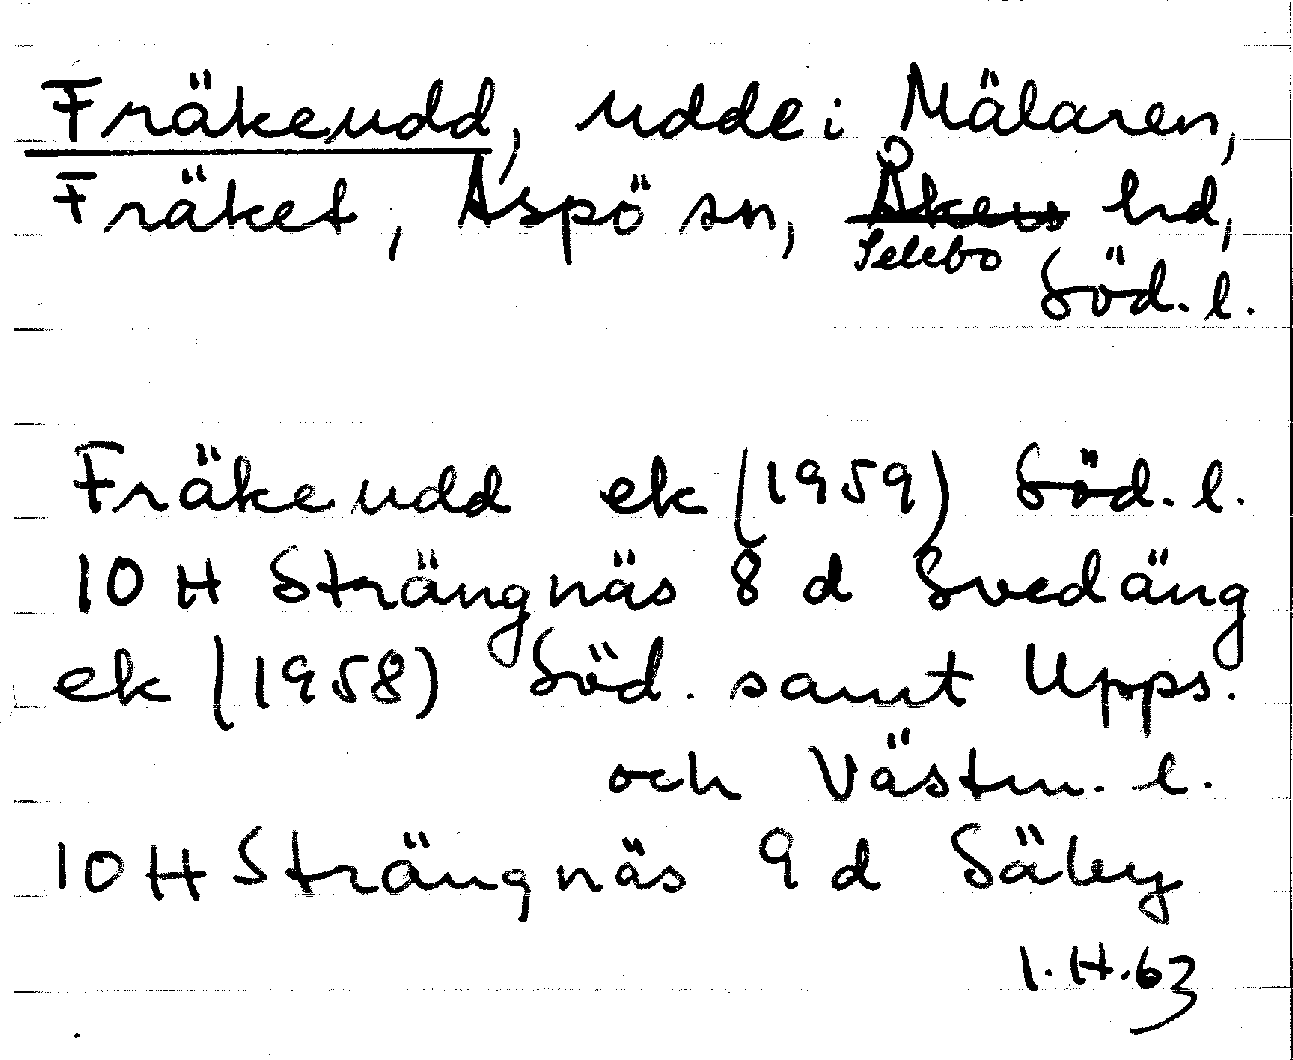 Fräkeudd, udde i Mälaren,
Fräket, Aspö sn, Åkers hd,
Selebo
Söd. l.
Fräkeudd ek (1959) Söd. l.
10 H Strängnäs 8 d Svedäng
ek (1958) Söd. samt Upps.
och Västm. l.
10 H Strängnäs 9 d Säby
1.H.63